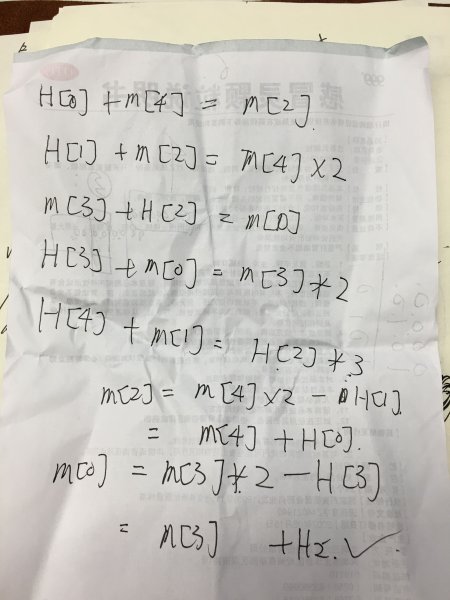 H[0] + m[4] = m[2].
H[1] + m[2] = m[4] × 2
m[3] + H[2] = m[0]
H[3] + m[0] = m[3] * 2
H[4] + m[1] = H[2] * 3
m[2] = m[4] × 2 - H[1].
= m[4] + H[0].
m[0] = m[3] * 2 - H[3]
= m[3] + H2. ✓